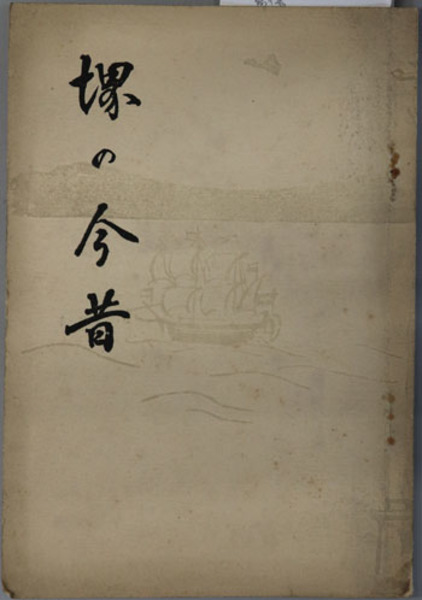 堺の今昔